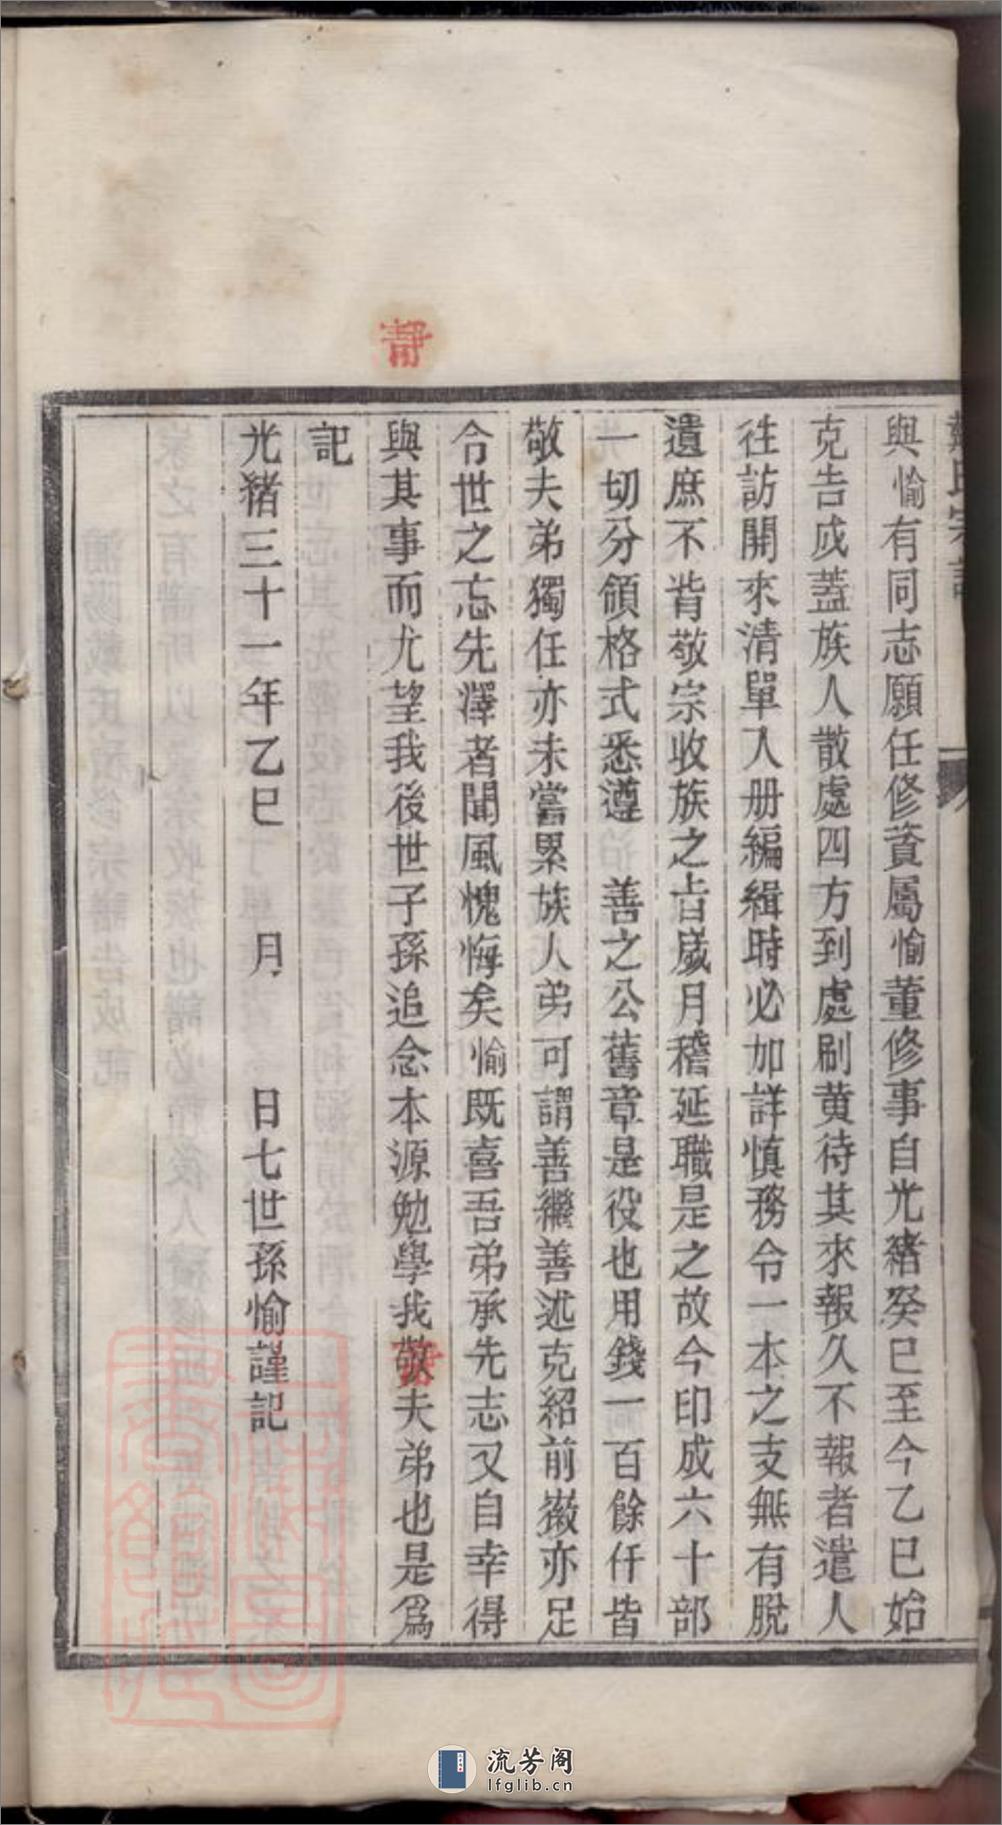 戴氏宗譜
與愉有同志願任修資屬愉董修事自光緒癸巳至今乙巳始
克告成蓋族人散處四方到處刷黄待其來報久不報者遣人
往訪開來清單入册編緝時必加詳慎務令一本之支無有脫
遺庶不背敬宗收族之㫖歲月稽延職是之故今印成六十部
一切分領格式悉遵　善之公舊章是役也用錢一百餘仟皆
敬夫弟獨任亦未嘗累族人弟可謂善繼善述克紹前徽亦足
令世之忘先澤者聞風愧悔矣愉既喜吾弟承先志又自幸得
與其事而尤望我後世子孫追念本源勉學我敬夫弟也是爲
記
光緒三十一年乙巳　　月　　日七世孫愉謹記
流芳阁
lfglib.cn